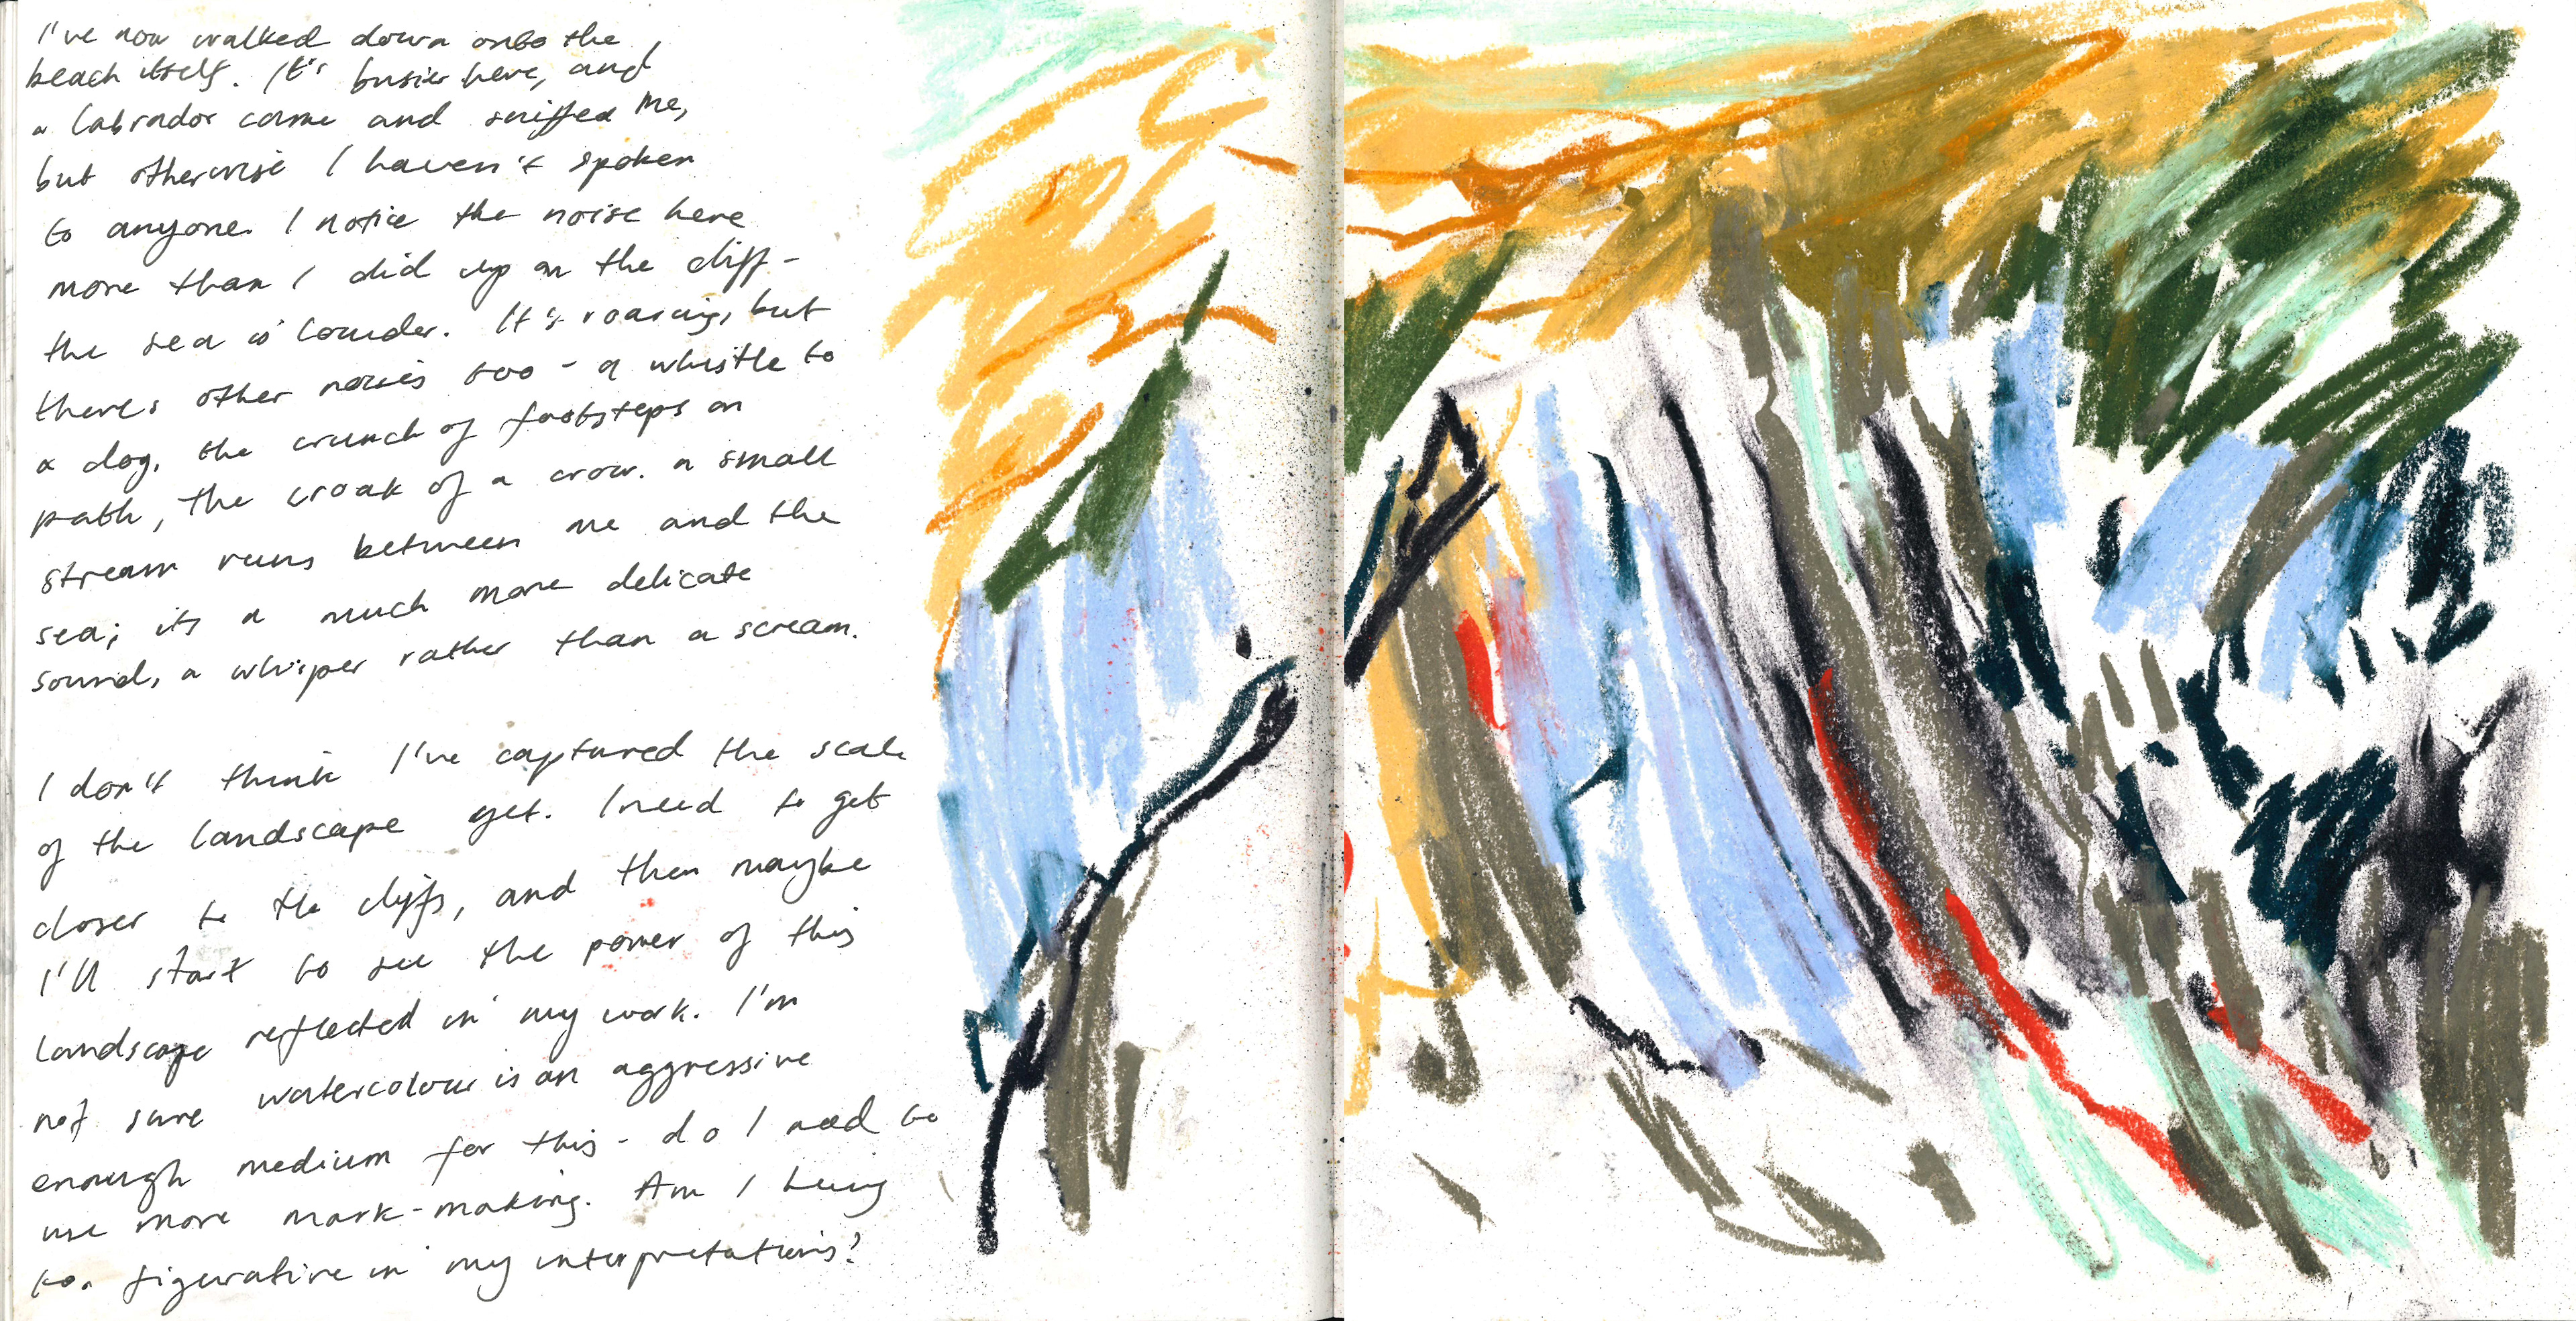 I've now walked down onto the
beach itself. It's busier here, and
a labrador came and sniffed me,
but otherwise I haven't spoken
to anyone. I notice the noise here
more than I did up on the cliff -
the sea is louder. It's roaring, but
there's other noises too - a whistle to
a dog, the crunch of footsteps on
path, the croak of a crow. a small
stream runs between me and the
sea; its a much more delicate
sound, a whisper rather than a scream.
I don't think I've captured the scale
of the landscape yet. I need to get
closer to the cliffs, and then maybe
I'll start to see the power of this
landscape reflected in my work. I'm
not sure watercolour is an aggressive
enough medium for this - do I need to
use more mark-making. Am I being
too figurative in my interpretations?